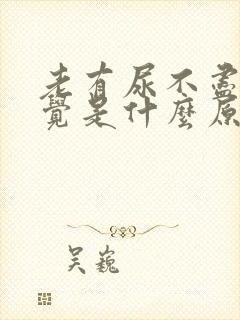 老有尿不盡
覺是什麼原
吴巍